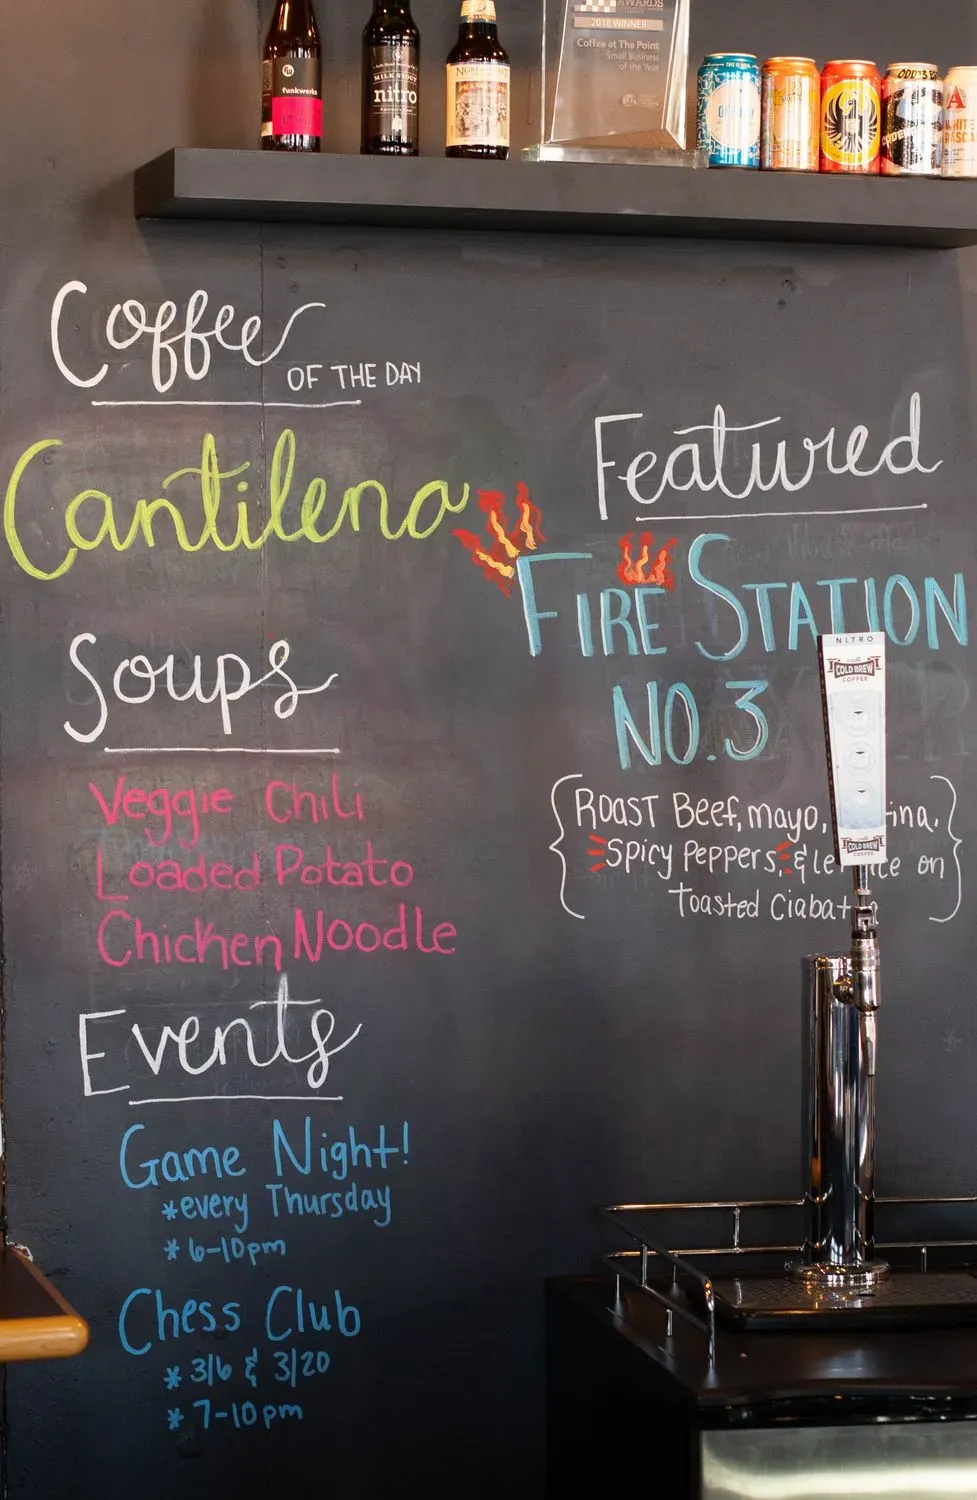 funkwerks
MILK STOUT
nitro
AWARDS
2018 WINNER
Coffee at The Point
Small Business
of the Year
Coffee
OF THE DAY
Cantilena
Soups
Veggie Chili
Loaded Potato
Chicken Noodle
Events
Game Night!
*every Thursday
*6-10pm
Chess Club
*3/6 & 3/20
*7-10pm
Featured
FIRE STATION
NO.3
{Roast Beef, mayo,
Spicy Peppers, & on
Toasted}
NITRO
COLD BREW
COFFEE
COLD BREW
COFFEE